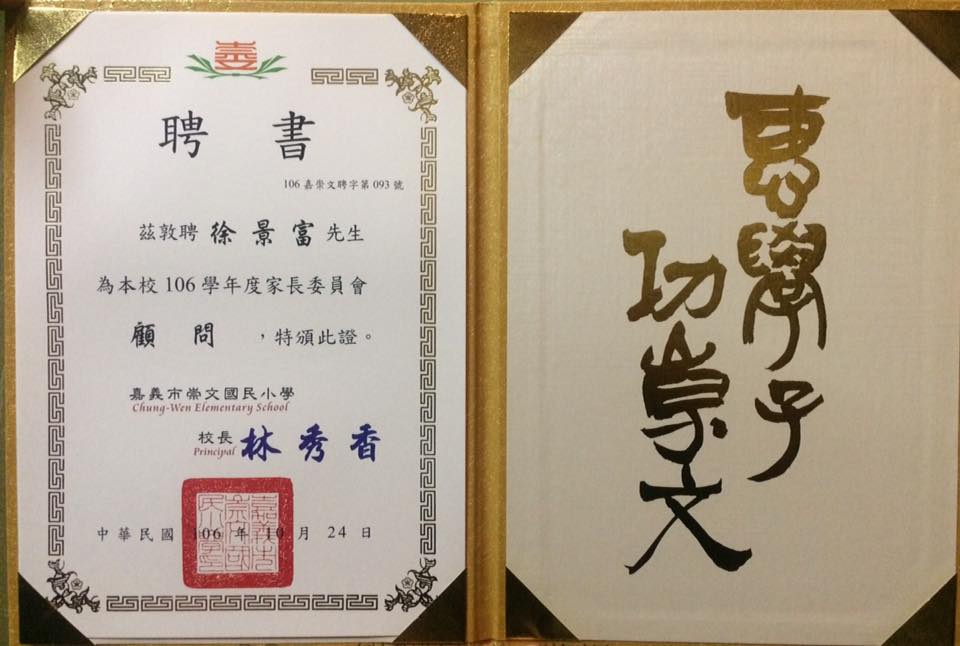 聘 書
106 嘉崇文聘字第 093 號
茲敦聘 徐景富 先生
為本校 106 學年度家長委員會
顧 問 ，特頒此證。
嘉義市崇文國民小學
Chung-Wen Elementary School
校長 林秀香
Principal
中華民國 106 年 10 月 24 日
嘉義市崇文國民小學
惠學子
功崇文